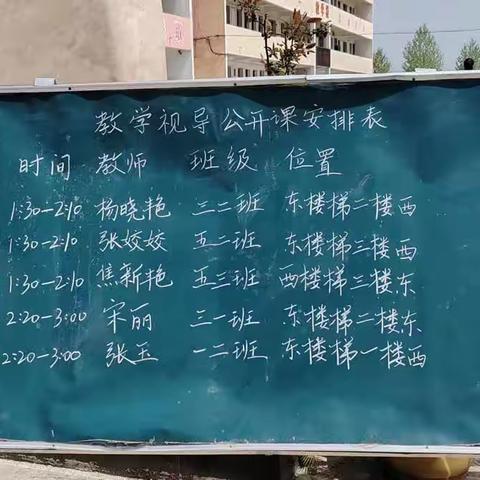 教学视导公开课安排表
时间 教师 班级 位置
1:30—2:10 杨晓艳 三二班 东楼梯二楼西
1:30—2:10 张姣姣 五一班 东楼梯三楼西
1:30—2:10 焦新艳 五三班 西楼梯三楼东
2:20—3:00 宋丽 三一班 东楼梯二楼东
2:20—3:00 张玉 一二班 东楼梯一楼西